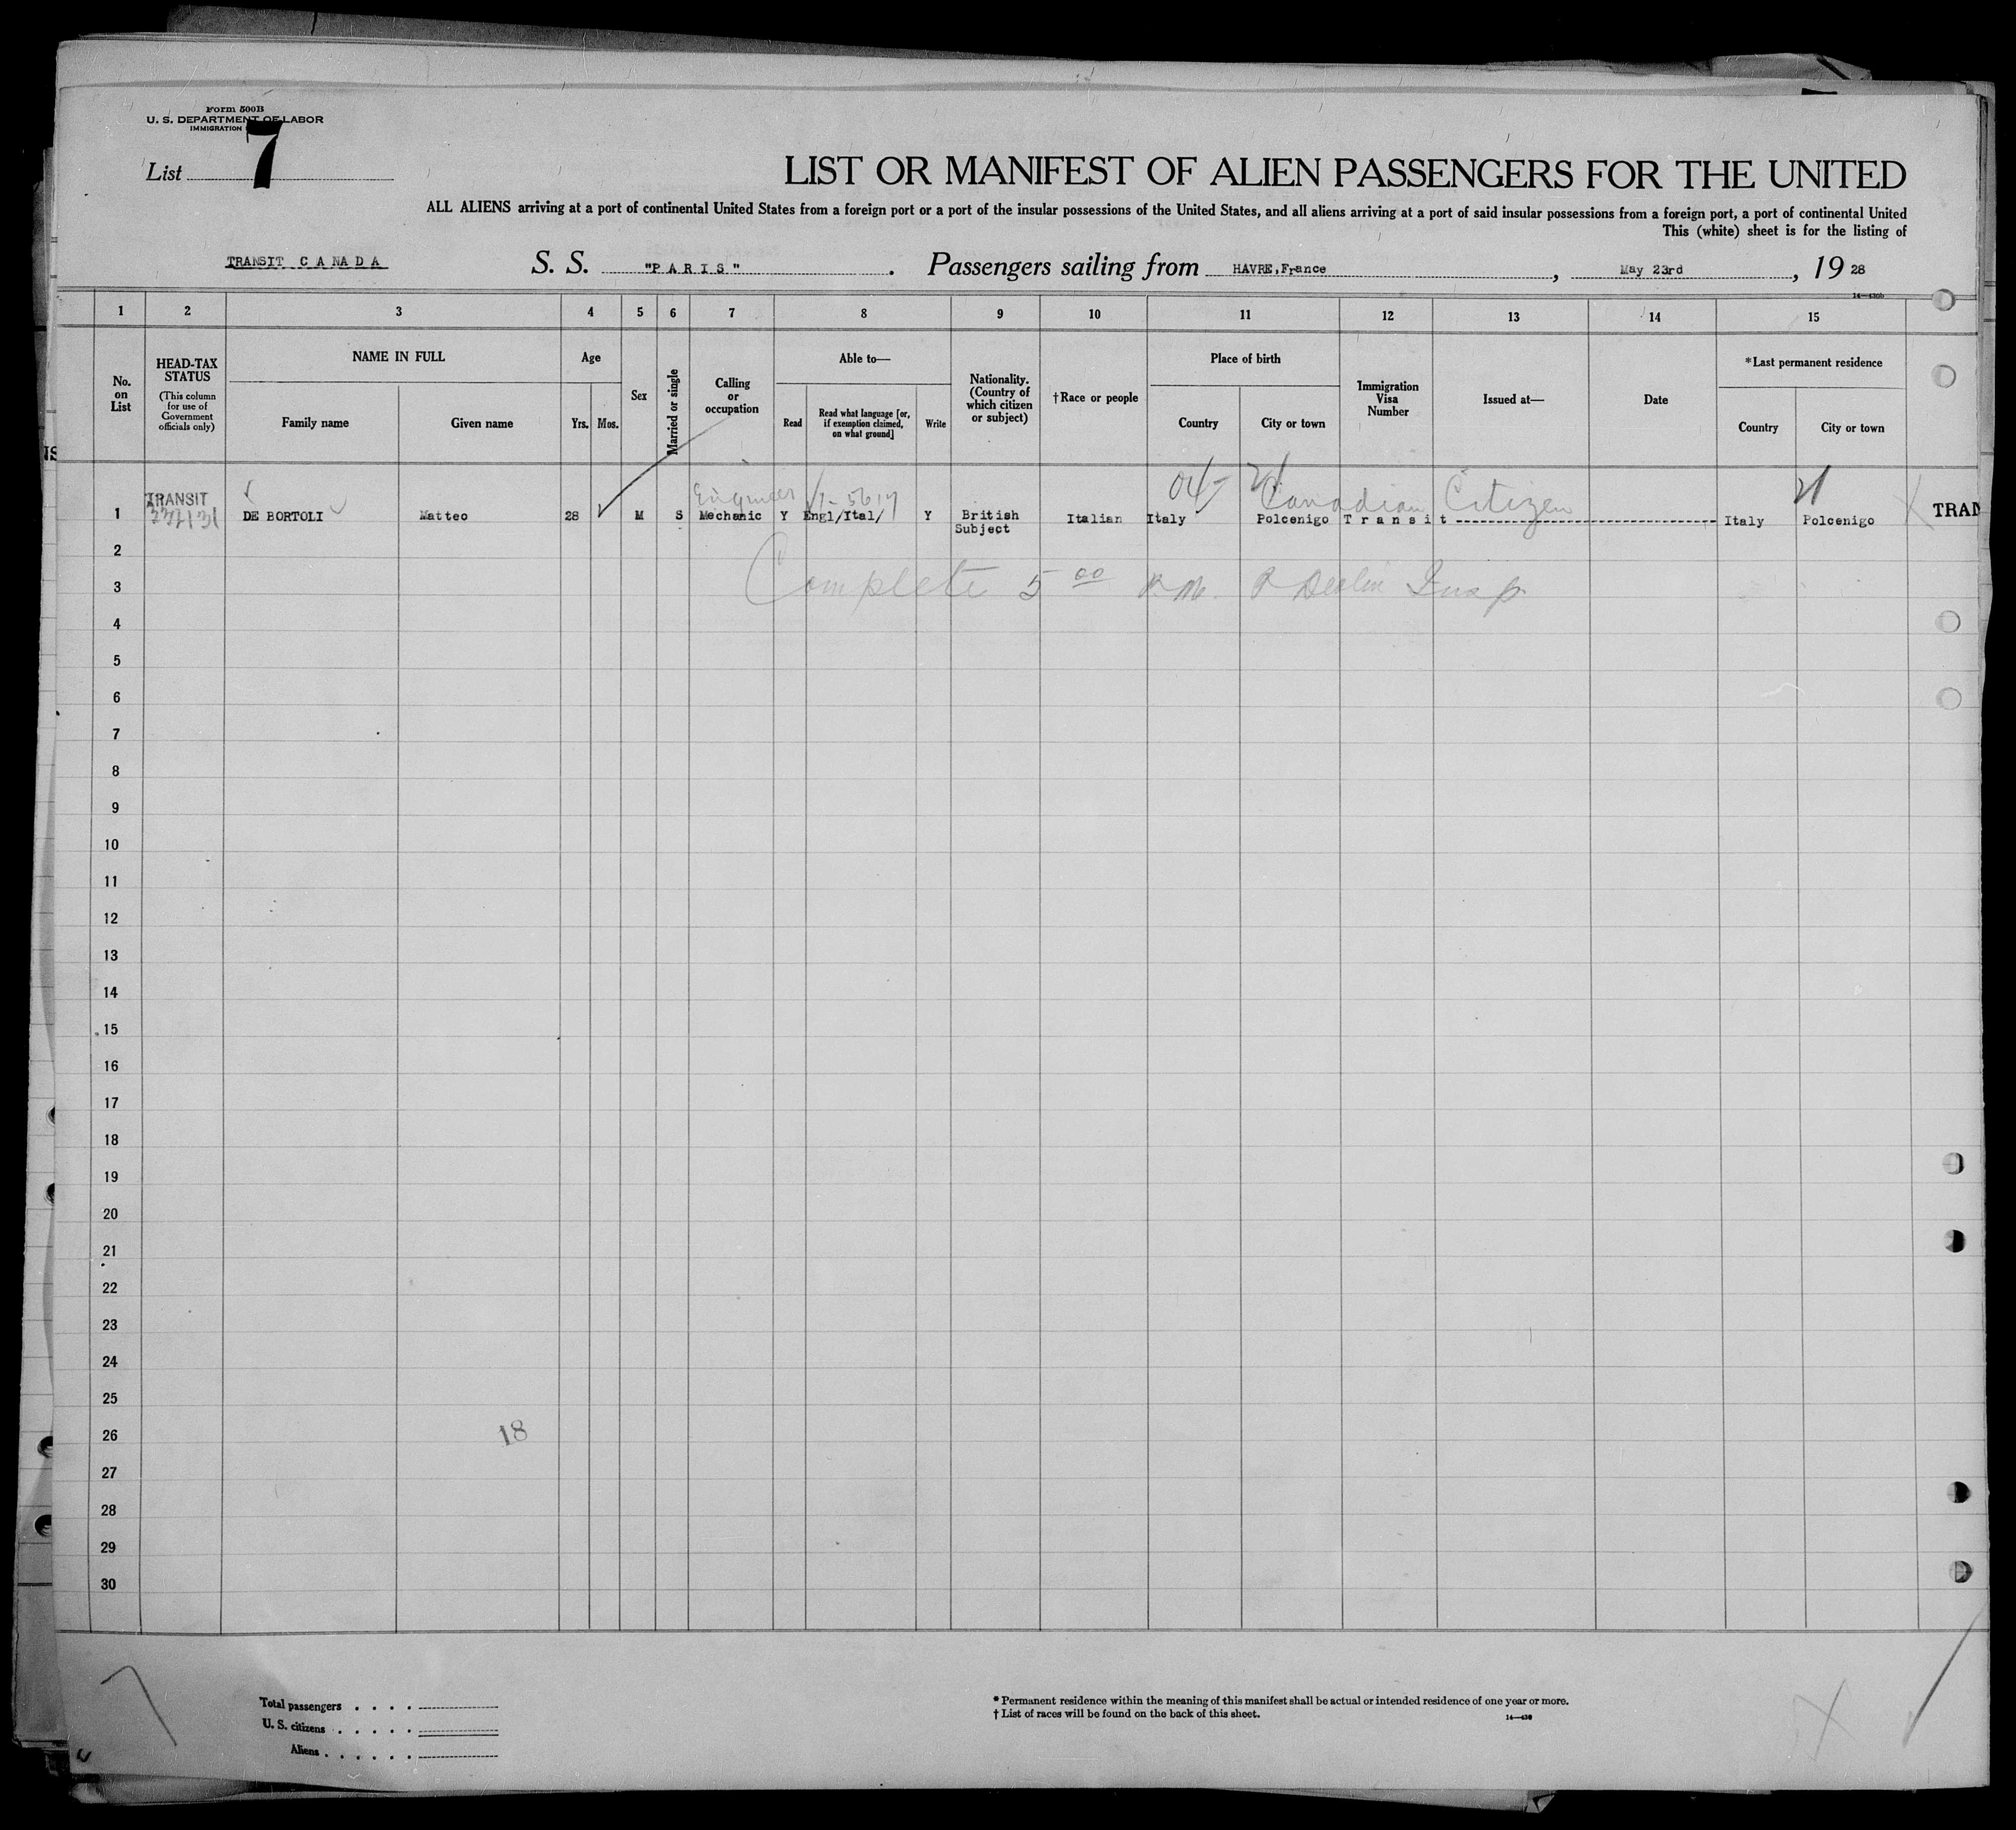 Form 500B
U. S. DEPARTMENT OF LABOR
IMMIGRATION
List 7
LIST OR MANIFEST OF ALIEN PASSENGERS FOR THE UNITED
ALL ALIENS arriving at a port of continental United States from a foreign port or a port of the insular possessions of the United States, and all aliens arriving at a port of said insular possessions from a foreign port, a port of continental United
This (white) sheet is for the listing of
TRANSIT CANADA S. S. "PARIS". Passengers sailing from HAVRE, France, May 23rd, 19 28
14—430b
1 2 3 4 5 6 7 8 9 10 11 12 13 14 15
No. on List
HEAD-TAX STATUS (This column for use of Government officials only)
NAME IN FULL
Family name Given name
Age
Yrs. Mos.
Sex
Married or single
Calling or occupation
Able to—
Read Read what language [or, if exemption claimed, on what ground] Write
Nationality. (Country of which citizen or subject)
†Race or people
Place of birth
Country City or town
Immigration Visa Number
Issued at—
Date
*Last permanent residence
Country City or town
IS
Engineer Canadian Citizen
1 TRANSIT DE BORTOLI Matteo 28 M S Mechanic Y Engl/Ital/ Y British Subject Italian Italy Polcenigo Transit Italy Polcenigo TRAN
2
Complete 5 00 P.M. Insp
3
4
5
6
7
8
9
10
11
12
13
14
15
16
17
18
19
20
21
22
23
24
25
26 18
27
28
29
30
Total passengers . . . .
U. S. citizens . . . . .
Aliens . . . . . .
* Permanent residence within the meaning of this manifest shall be actual or intended residence of one year or more.
† List of races will be found on the back of this sheet.
14—430